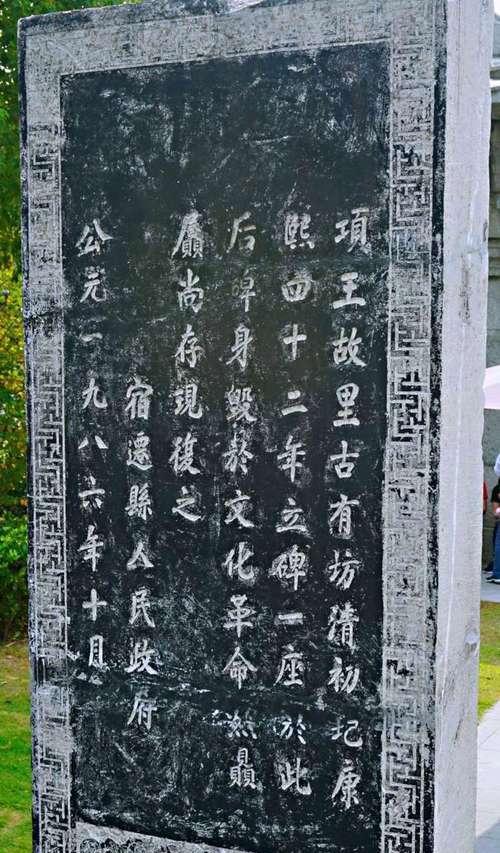 項王故里古有坊清初圮康
熙四十二年立碑一座於此
后碑身毀於文化革命然贔
屭尚存現復之
宿遷縣人民政府
公元一九八六年十月